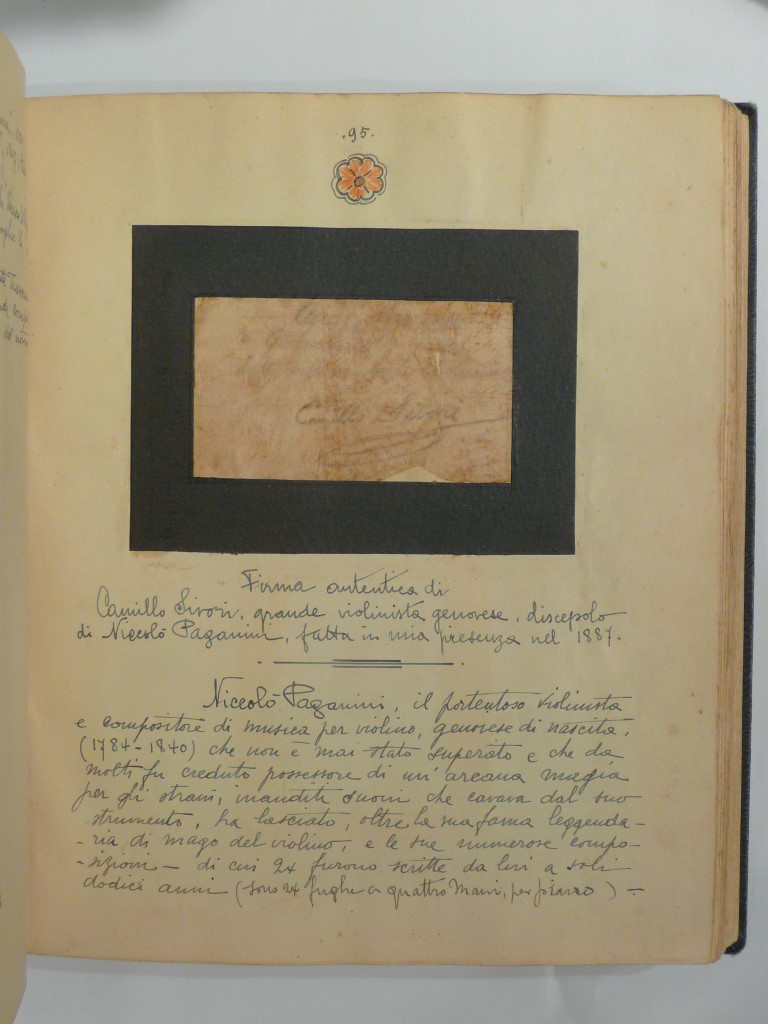 .95.
Camillo Sivori
Firma autentica di
Camillo Sivori, grande violinista genovese, discepolo
di Niccolò Paganini, fatta in mia presenza nel 1887.
Niccolò Paganini, il portentoso violinista
e compositore di musica per violino, genovese di nascita,
(1784-1840) che non è mai stato superato e che da
molti fu creduto possessore di un'arcana magia
per gli strani, inauditi suoni che cavava dal suo
strumento, ha lasciato, oltre la sua fama leggenda-
-ria, di mago del violino, e le sue numerose compo-
-sizioni - di cui 24 furono scritte da lui a soli
dodici anni (sono 24 fughe a quattro mani, per piano) -